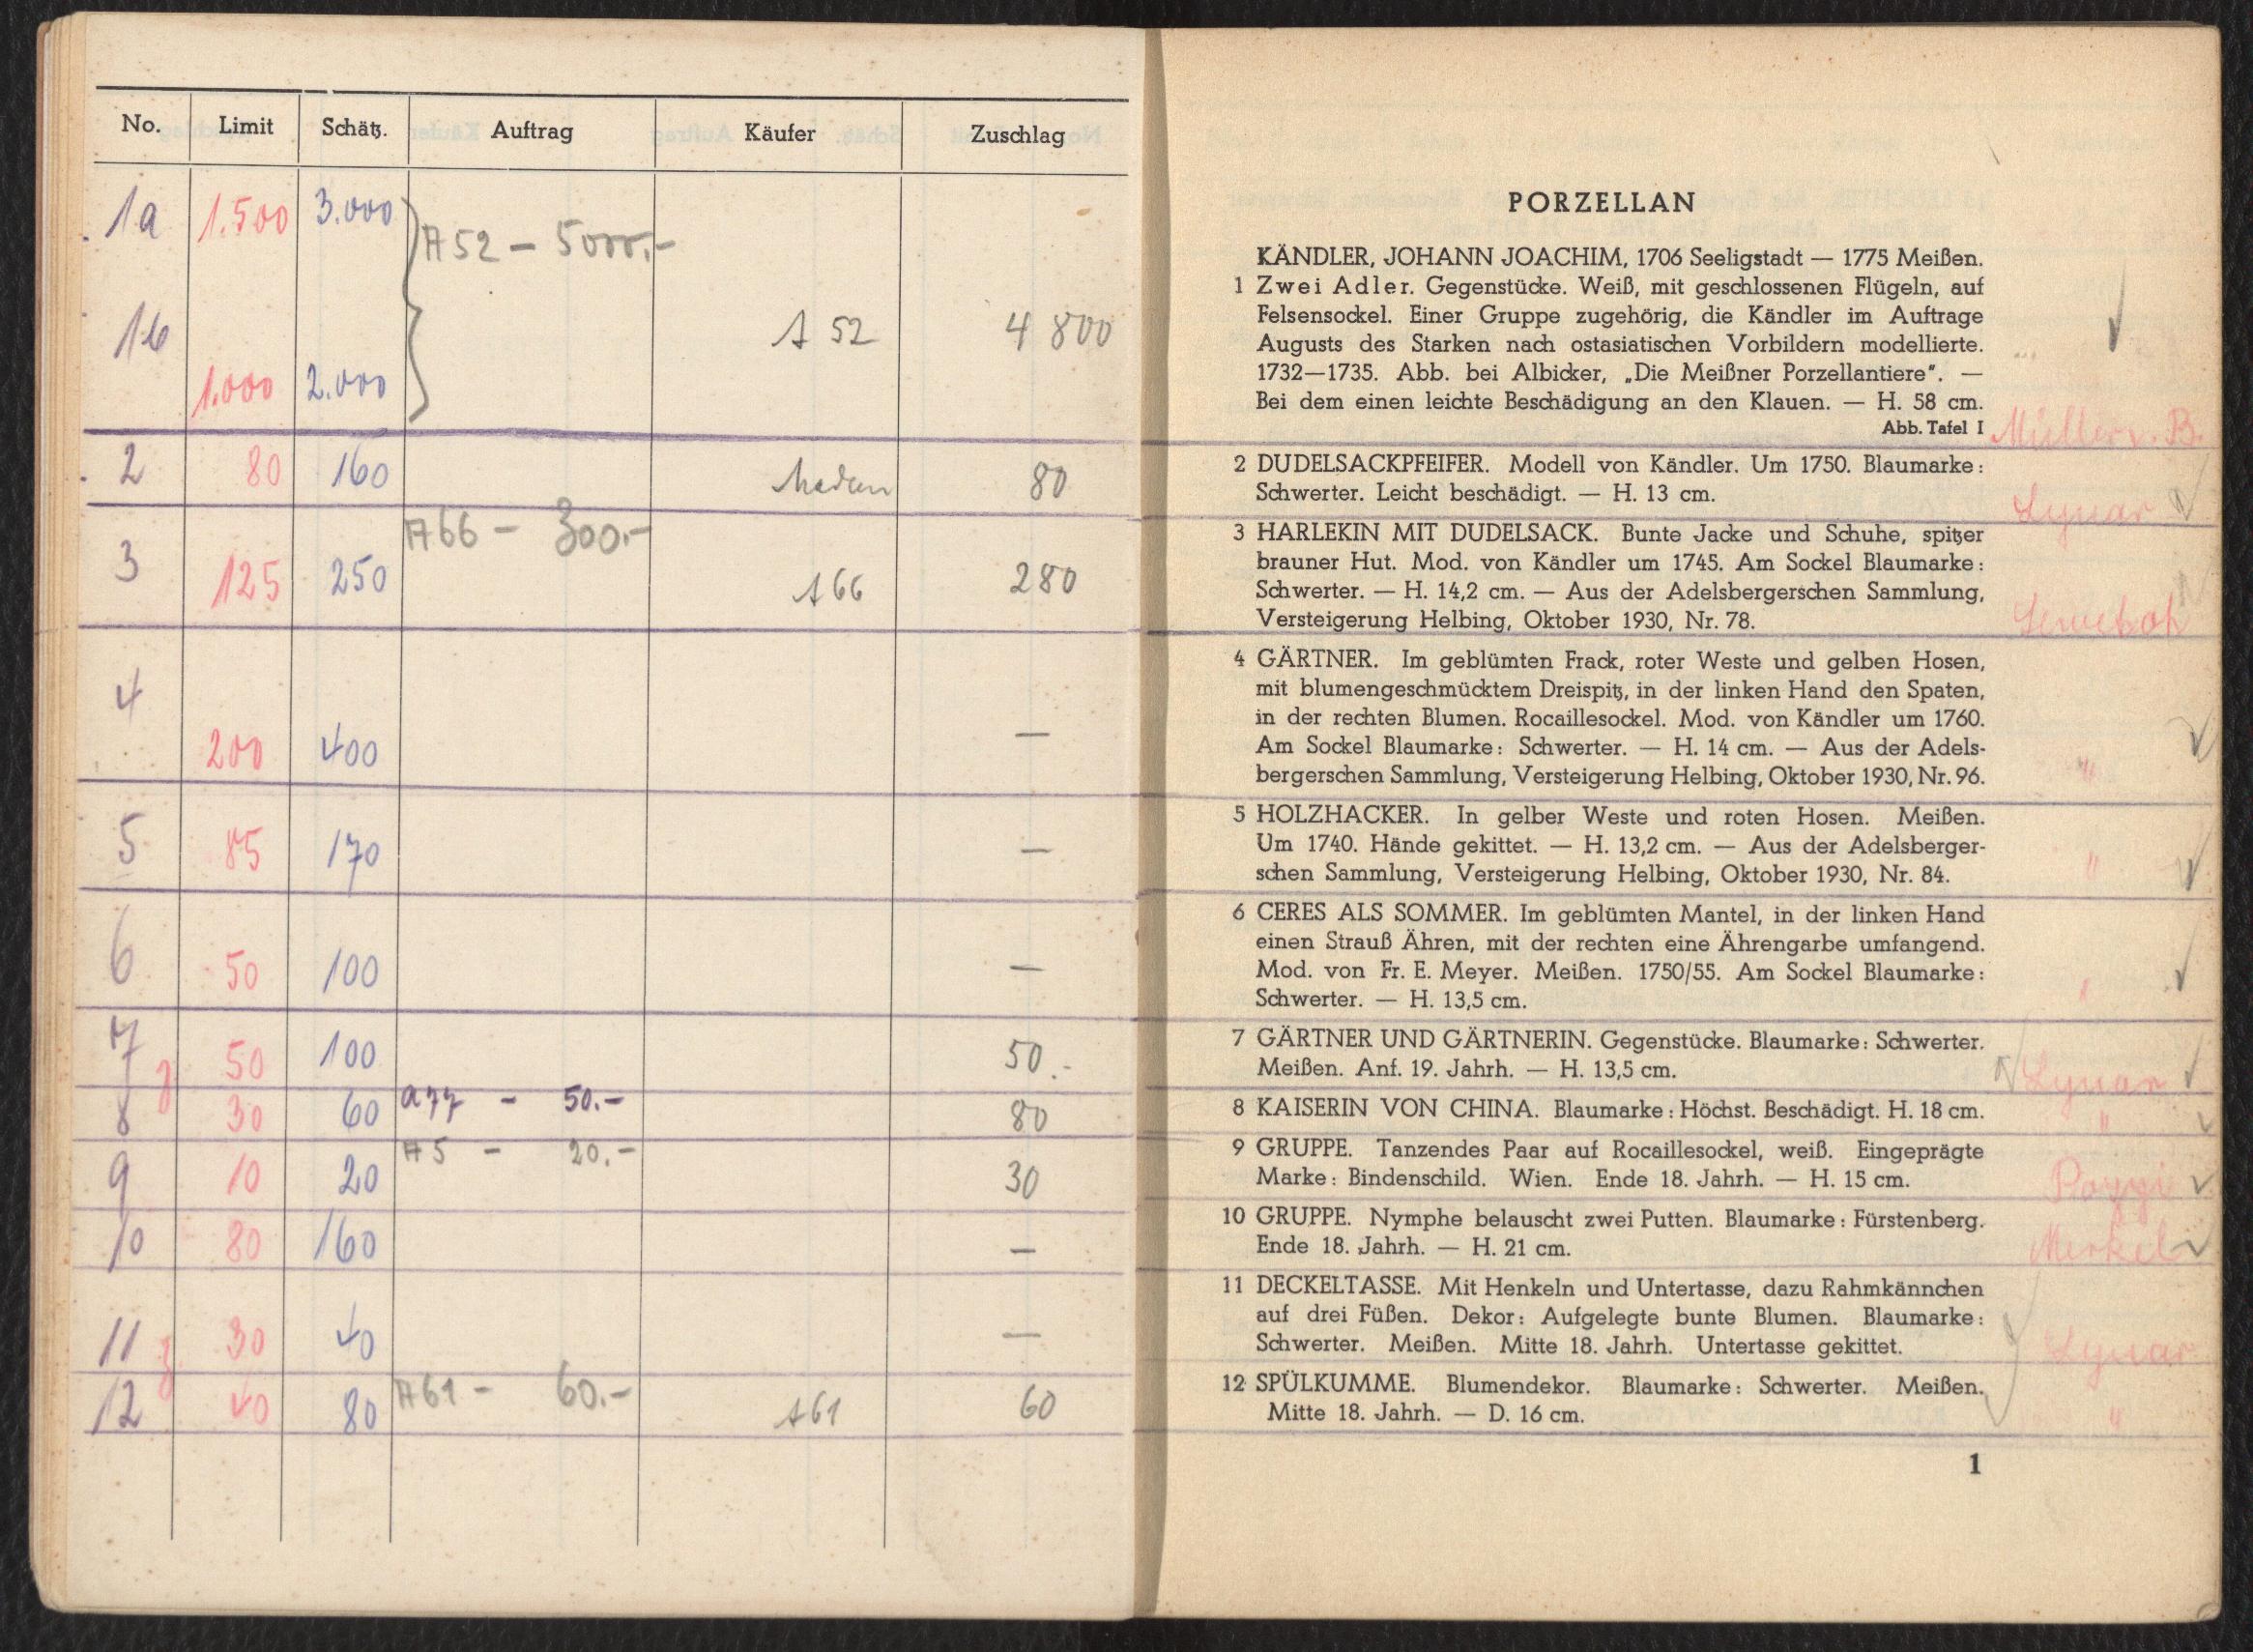 No. Limit Schätz. Auftrag Käufer Zuschlag
1a 1.500 3.000
A52 – 5000.–
1b A 52 4 800
1.000 2.000
2 80 160 80
A66 – 300.–
3 125 250 A 66 280
4
200 400 —
5 85 170 —
6 50 100 —
7 50 100 50.-
8 30 60 a77 – 50.– 80
A5 – 20.–
9 10 20 30
10 80 160 —
11 30 40 —
12 40 80 A61 – 60.– A 61 60
PORZELLAN
KÄNDLER, JOHANN JOACHIM, 1706 Seeligstadt — 1775 Meißen.
1 Zwei Adler. Gegenstücke. Weiß, mit geschlossenen Flügeln, auf
Felsensockel. Einer Gruppe zugehörig, die Kändler im Auftrage
Augusts des Starken nach ostasiatischen Vorbildern modellierte.
1732—1735. Abb. bei Albicker, „Die Meißner Porzellantiere“. —
Bei dem einen leichte Beschädigung an den Klauen. — H. 58 cm.
Abb. Tafel I Müller v. B.
2 DUDELSACKPFEIFER. Modell von Kändler. Um 1750. Blaumarke:
Schwerter. Leicht beschädigt. — H. 13 cm.
Lynar
3 HARLEKIN MIT DUDELSACK. Bunte Jacke und Schuhe, spitzer
brauner Hut. Mod. von Kändler um 1745. Am Sockel Blaumarke:
Schwerter. — H. 14,2 cm. — Aus der Adelsbergerschen Sammlung,
Versteigerung Helbing, Oktober 1930, Nr. 78.
4 GÄRTNER. Im geblümten Frack, roter Weste und gelben Hosen,
mit blumengeschmücktem Dreispitz, in der linken Hand den Spaten,
in der rechten Blumen. Rocaillesockel. Mod. von Kändler um 1760.
Am Sockel Blaumarke: Schwerter. — H. 14 cm. — Aus der Adels-
bergerschen Sammlung, Versteigerung Helbing, Oktober 1930, Nr. 96. "
5 HOLZHACKER. In gelber Weste und roten Hosen. Meißen.
Um 1740. Hände gekittet. — H. 13,2 cm. — Aus der Adelsberger-
schen Sammlung, Versteigerung Helbing, Oktober 1930, Nr. 84. "
6 CERES ALS SOMMER. Im geblümten Mantel, in der linken Hand
einen Strauß Ähren, mit der rechten eine Ährengarbe umfangend.
Mod. von Fr. E. Meyer. Meißen. 1750/55. Am Sockel Blaumarke:
Schwerter. — H. 13,5 cm. "
7 GÄRTNER UND GÄRTNERIN. Gegenstücke. Blaumarke: Schwerter.
Meißen. Anf. 19. Jahrh. — H. 13,5 cm. Lynar
8 KAISERIN VON CHINA. Blaumarke: Höchst. Beschädigt. H. 18 cm. "
9 GRUPPE. Tanzendes Paar auf Rocaillesockel, weiß. Eingeprägte
Marke: Bindenschild. Wien. Ende 18. Jahrh. — H. 15 cm.
10 GRUPPE. Nymphe belauscht zwei Putten. Blaumarke: Fürstenberg.
Ende 18. Jahrh. — H. 21 cm. Merkel
11 DECKELTASSE. Mit Henkeln und Untertasse, dazu Rahmkännchen
auf drei Füßen. Dekor: Aufgelegte bunte Blumen. Blaumarke:
Schwerter. Meißen. Mitte 18. Jahrh. Untertasse gekittet. Lynar
12 SPÜLKUMME. Blumendekor. Blaumarke: Schwerter. Meißen.
Mitte 18. Jahrh. — D. 16 cm. "
1